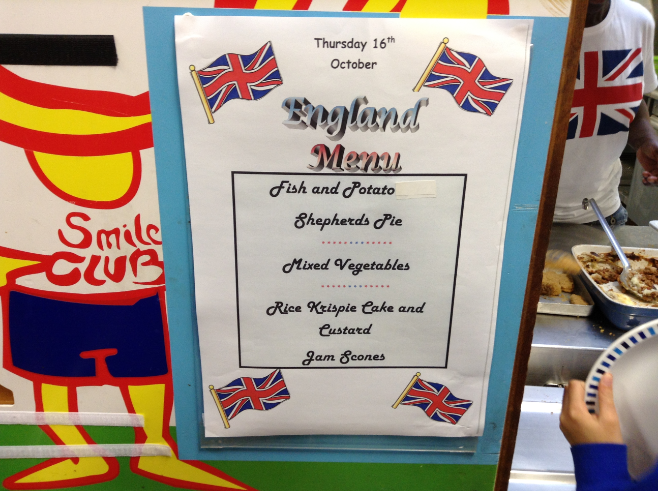 Thursday 16th
October
England
Menu
Fish and Potato
Shepherds Pie
Mixed Vegetables
Rice Krispie Cake and
Custard
Jam Scones
Smile
CLUB